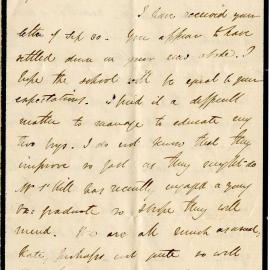 I have received your
letter of Sep 30. You appear to have
settled down in your new abode. I
hope the school will be equal to your
expectations. I find it a difficult
matter to manage to educate my
two boys. I do not know that they
improve so fast as they might do
Mr Hill has recently engaged a young
graduate so I hope they will
mend. We are all much as usual,
Kate, perhaps not quite so well